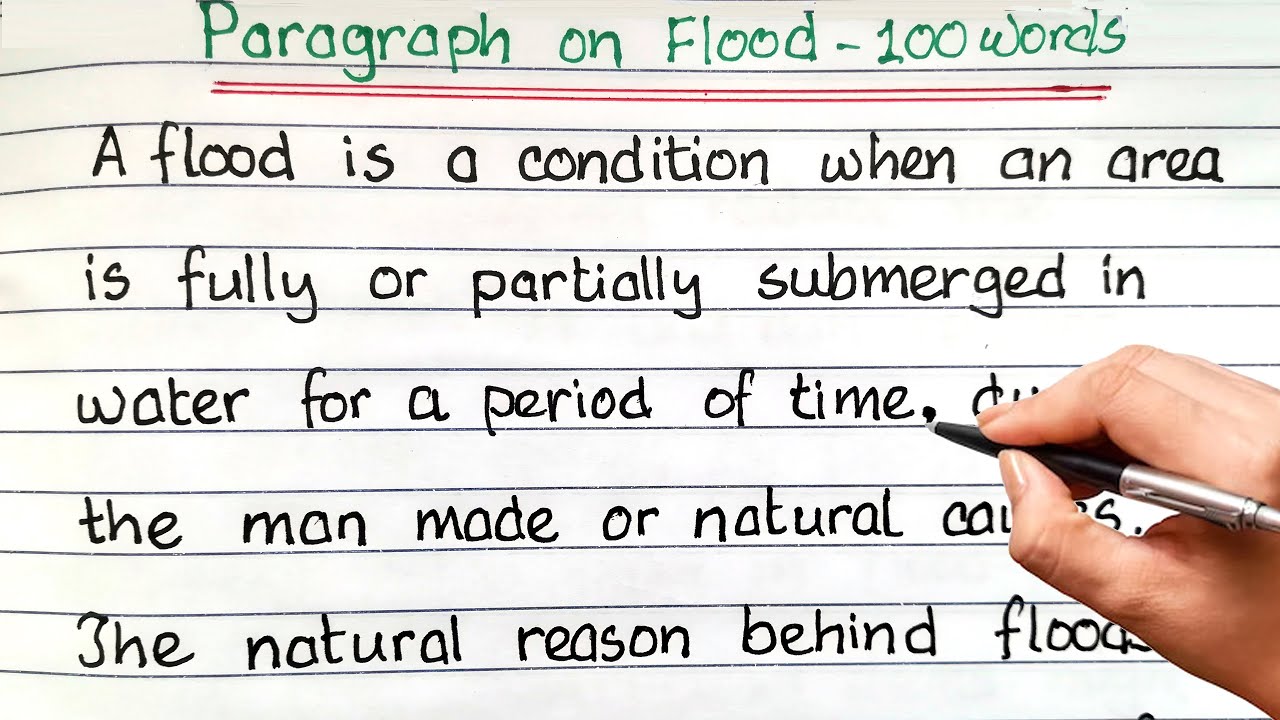 Paragraph on Flood - 100 words
A flood is a condition when an area
is fully or partially submerged in
water for a period of time,
the man made or natural
The natural reason behind